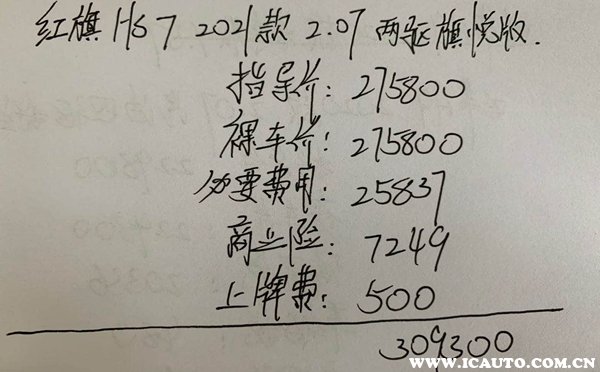 红旗 HS7 2021款 2.0T 两驱旗悦版.
指导价: 275800
裸车价: 275800
必要费用: 25837
商业险: 7249
上牌费: 500
309300
WWW.ICAUTO.COM.CN